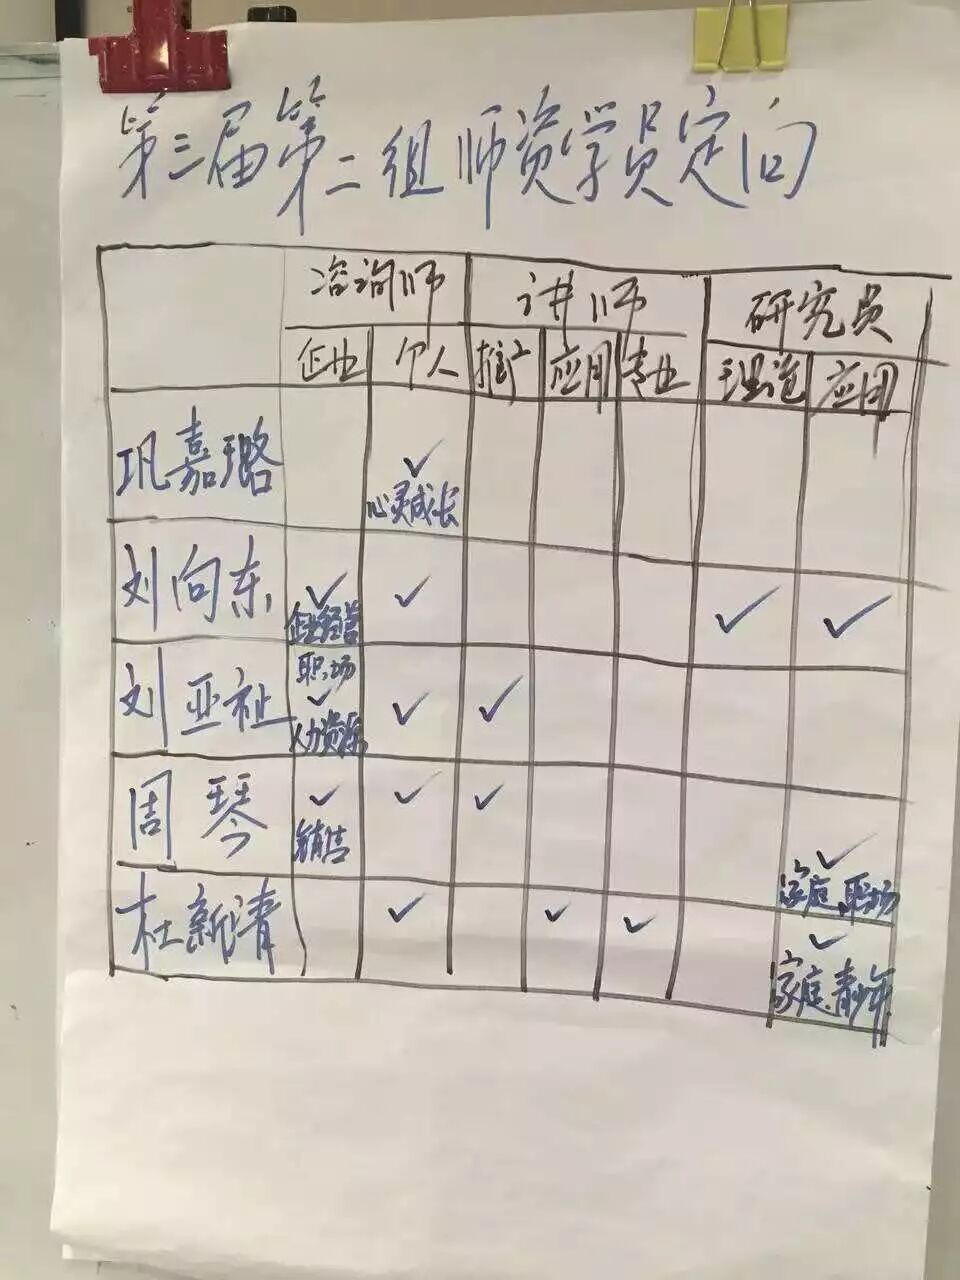 第三届第二组师资学员定向
咨询师 讲师 研究员
企业 个人 推广 应用 专业 理论 应用
巩嘉璐 ✓
心灵成长
刘向东 ✓ ✓ ✓ ✓
企业经营
职场
刘亚祉 ✓ ✓ ✓
人力资源
周琴 ✓ ✓ ✓ ✓
销售 家庭、职场
杜新清 ✓ ✓ ✓ ✓
家庭、青少年